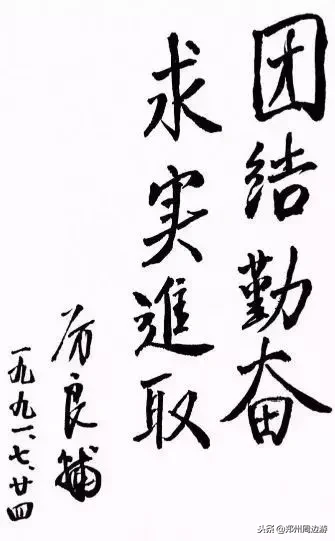 团结勤奋
求实進取
厉良辅
一九九一.七.廿四
头条@郑州周边游